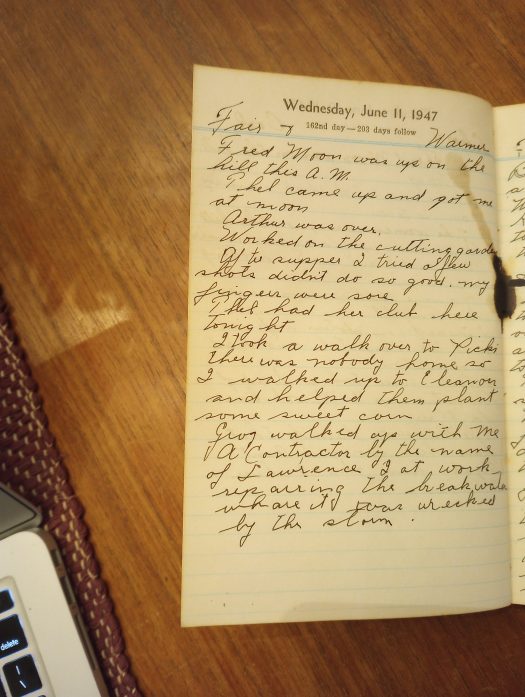 Wednesday, June 11, 1947
162nd day—203 days follow
Fair & Warmer
Fred Moon was up on the
hill this A.M.
Thel came up and got me
at noon
Arthur was over.
Worked on the cutting garden
Af te supper I tried a few
shots didn't do so good. my
fingers were sore
Thel had her club here
tonight
I took a walk over to Picks
there was nobody home so
I walked up to Eleanor
and helped them plant
some sweet corn
walked up with me
A Contractor by the name
of Lawrence at work
reparring the breakwate
whare it was wrecked
by the storm.
delete